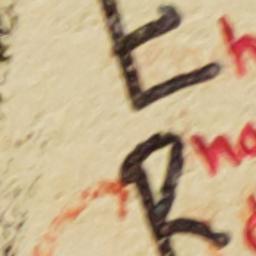 E h
R na